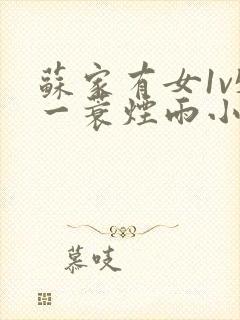 蘇家有女1v
一蓑煙雨小
慕吱